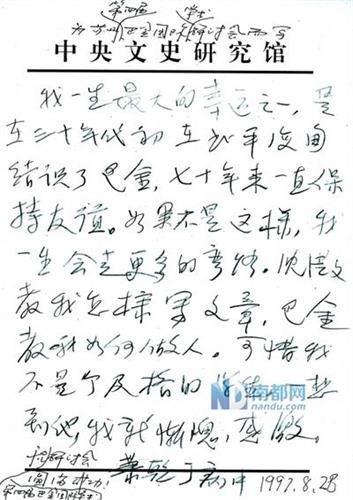 第四届 学术
为苏州巴金国际研讨会而写
中央文史研究馆
我一生最大的幸运之一，是
在三十年代初在北平后门
结识了巴金，七十年来一直保
持友谊。如果不是这样，我
一生会走更多的弯路。沈从文
教我怎样写文章，巴金
教我如何做人。可惜我
不是个及格的学生。一想
到他，我就惭愧，感激。
祝研讨会
圆满成功！
萧乾于病中 1997.8.28
南都网
nandu.com